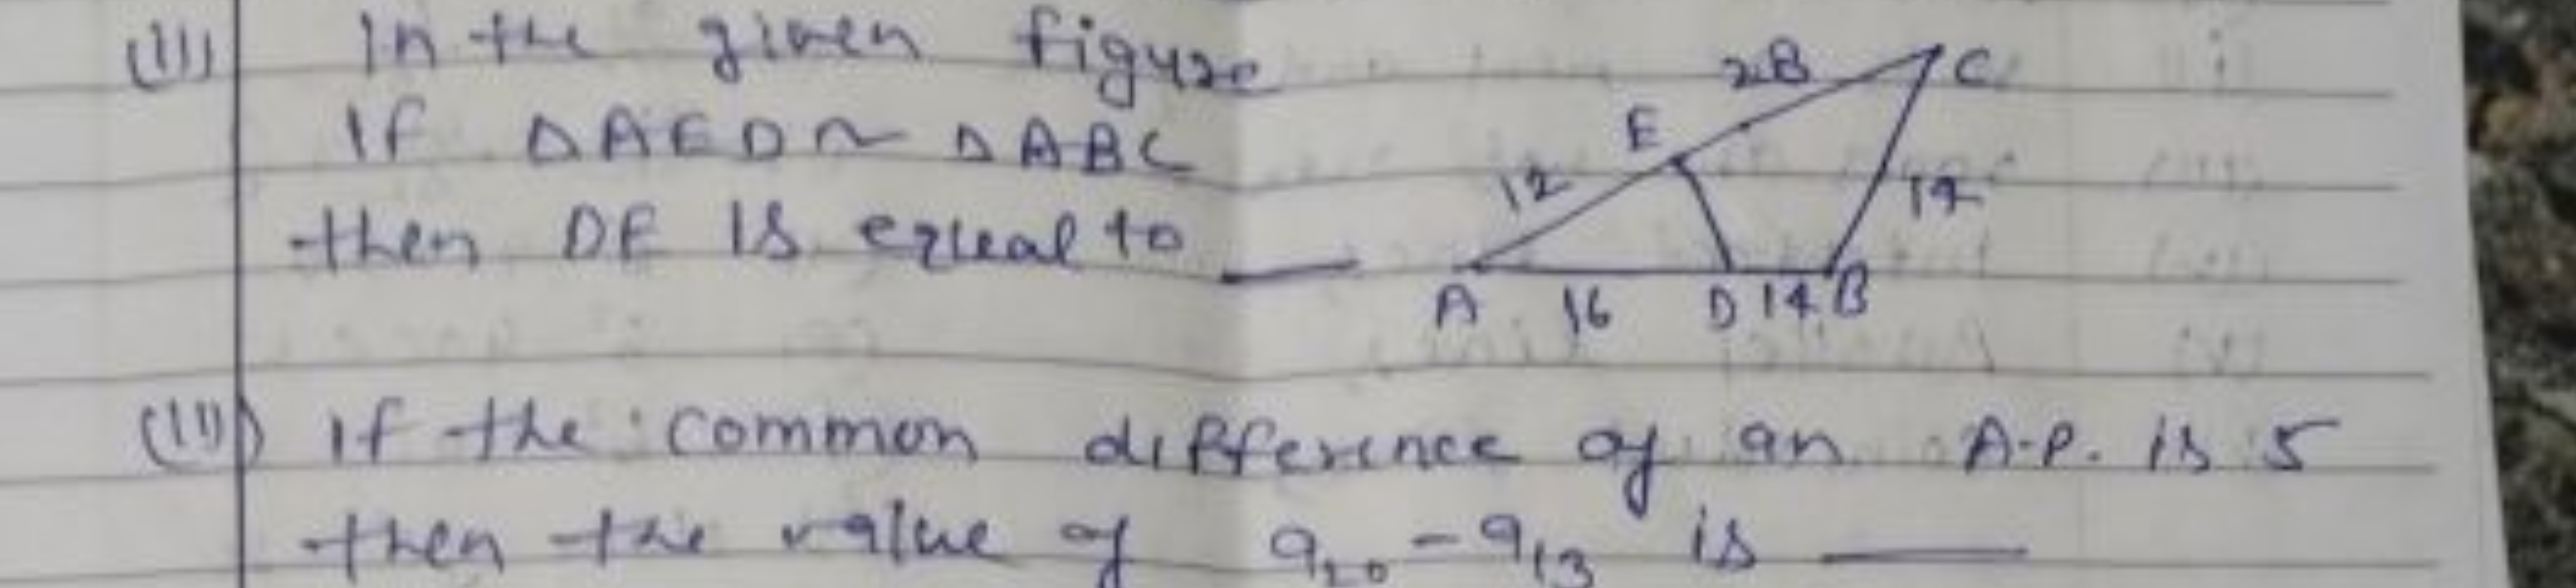 (ii) In the given figure
If △AED ~ △ABC
then DE is equal to ____
E 28 C
12 14
A 16 D 14 B
(iii) If the common difference of an A.P. is 5
then the value of a20 - a13 is ____